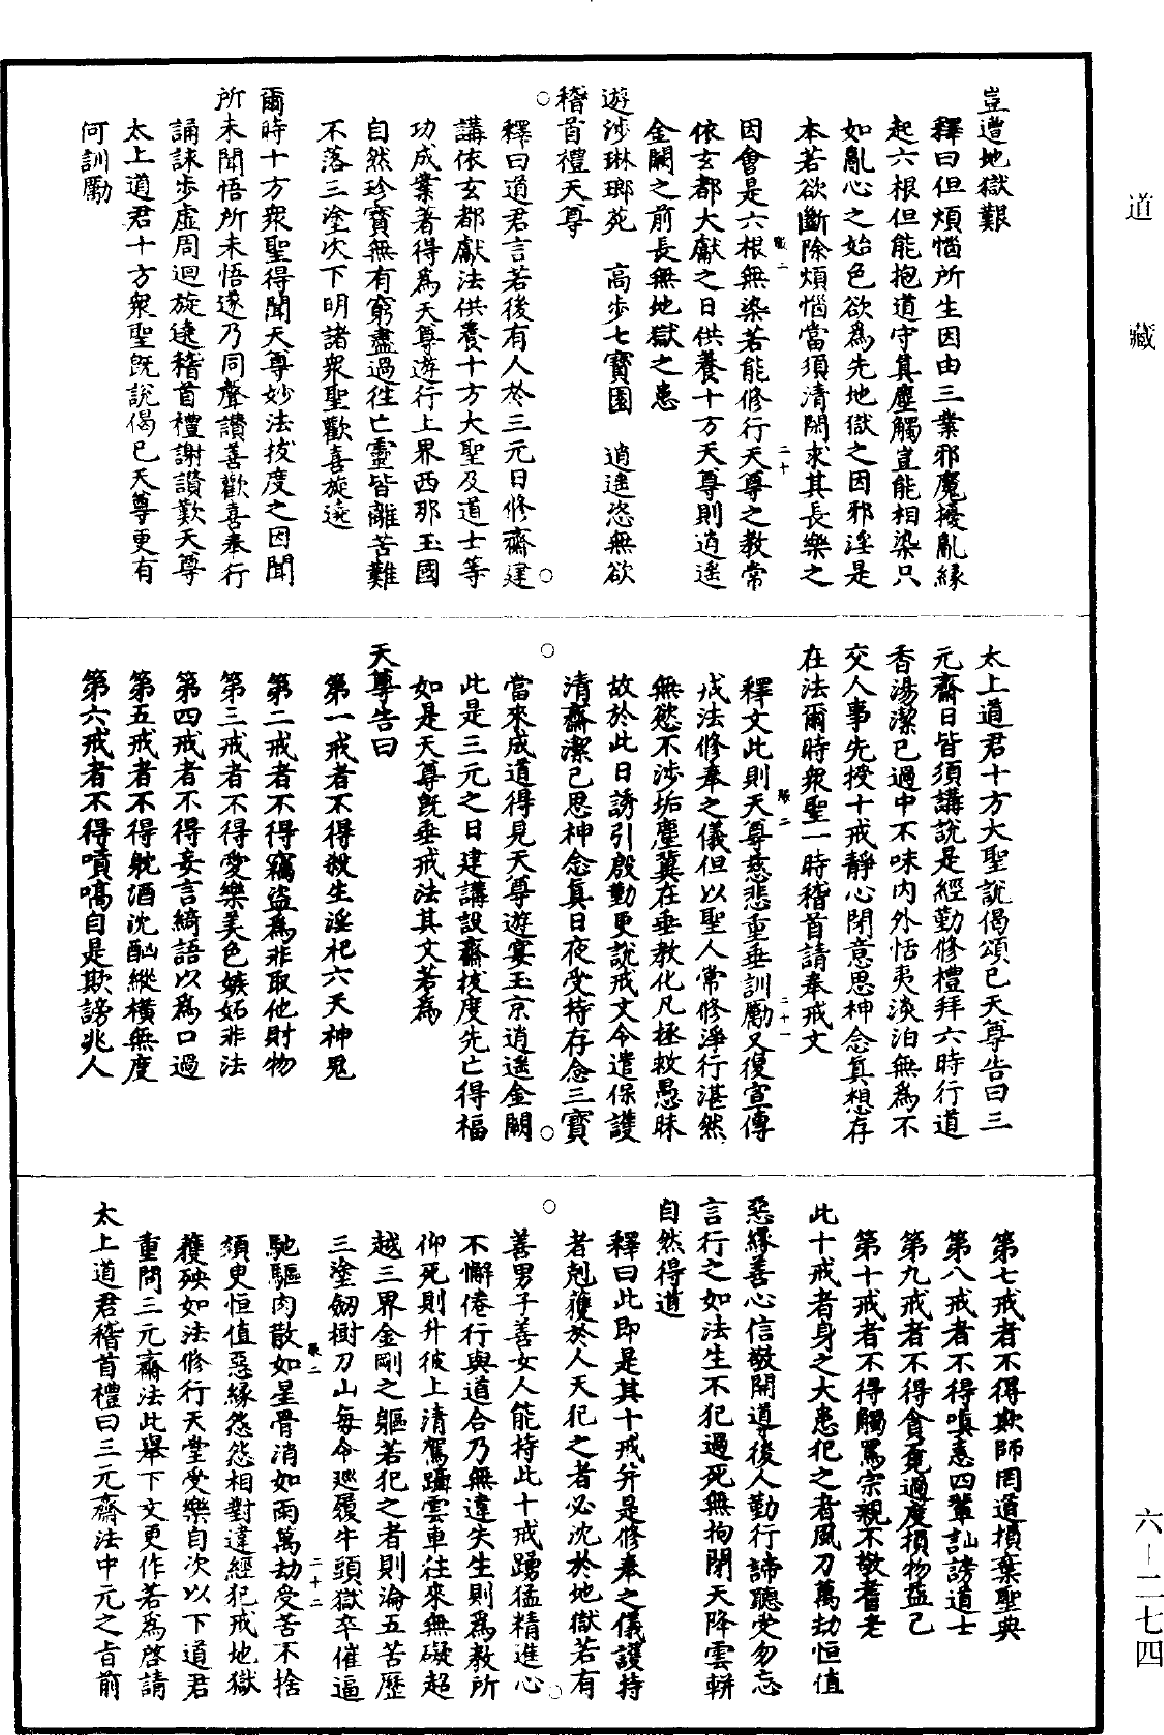 道藏
豈遭地獄艱
釋曰但煩惱所生因由三業邪魔擾亂緣
起六根但能抱道守真塵觸豈能相染只
如亂心之始色欲為先地獄之因邪淫是
本若欲斷除煩惱當須清閑求其長樂之
因會是六根無染若能修行天尊之教常
依玄都大獻之日供養十方天尊則逍遙
金闕之前長無地獄之患
遊涉琳瑯苑　高步七寶園　逍遙恣無欲
稽首禮天尊
釋曰道君言若後有人於三元日修齋建
講依玄都獻法供養十方大聖及道士等
功成業著得為天尊遊行上界西那玉國
自然珍寶無有窮盡過往亡靈皆離苦難
不落三塗次下明諸眾聖歡喜旋遶
爾時十方眾聖得聞天尊妙法拔度之因聞
所未聞悟所未悟遂乃同聲讚善歡喜奉行
誦詠步虛周迴旋遶稽首禮謝讚歎天尊
太上道君十方眾聖既說偈已天尊更有
何訓勵
太上道君十方大聖說偈頌已天尊告曰三
元齋日皆須講說是經勤修禮拜六時行道
香湯潔已過中不味內外恬夷淡泊無為不
交人事先授十戒靜心閉意思神念真想存
在法爾時眾聖一時稽首請奉戒文
釋文此則天尊慈悲重垂訓勵又復宣傳
戒法修奉之儀但以聖人常修淨行湛然
無慾不涉垢塵冀在垂教化凡拯救愚昧
故於此日誘引啟勤更說戒文令遣保護
清齋潔己思神念真日夜受持存念三寶
當來成道得見天尊遊宴玉京逍遙金闕
此是三元之日建講設齋拔度先亡得福
如是天尊既垂戒法其文若為
天尊告曰
第一戒者不得殺生淫祀六天神鬼
第二戒者不得竊盜為非取他財物
第三戒者不得愛樂美色嫉妬非法
第四戒者不得妄言綺語以為口過
第五戒者不得躭酒沈酗縱橫無度
第六戒者不得嗔嗃自是欺謗兆人
第七戒者不得欺師罔道損棄聖典
第八戒者不得嗔恚四輩訕謗道士
第九戒者不得貪冤過度損物益己
第十戒者不得觸罵宗親不敬耆老
此十戒者身之大患犯之者風刀萬劫恒值
惡緣善心信敬開導後人勤行諦聽受勿忘
言行之如法生不犯過死無拘閉天降雲軿
自然得道
釋曰此即是其十戒并是修奉之儀護持
者剋獲於人天犯之者必沈於地獄若有
善男子善女人能持此十戒踴猛精進心
不懈倦行與道合乃無違失生則為教所
仰死則升彼上清駕躡雲車往來無礙超
越三界金剛之軀若犯之者則淪五苦歷
三塗劒樹刀山每令廵履牛頭獄卒催逼
馳驅肉散如星骨消如雨萬劫受苦不捨
須臾恒值惡緣怨怨相對違經犯戒地獄
獲殃如法修行天堂受樂自次以下道君
重問三元齋法此舉下文更作若為啓請
太上道君稽首禮曰三元齋法中元之旨前
六－二七四